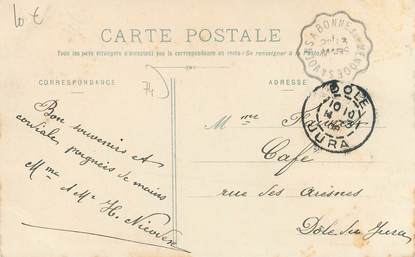 10 €
CARTE POSTALE
Tous les pays étrangers n'acceptent pas la correspondance au recto (Se renseigner à la Poste)
CORRESPONDANCE
ADRESSE
74
Bon souvenir et
cordiales poignées de mains
Mme & Mr H. Nicod
Mme
Café
rue des arènes
Dôle du Jura
DOLE
JURA